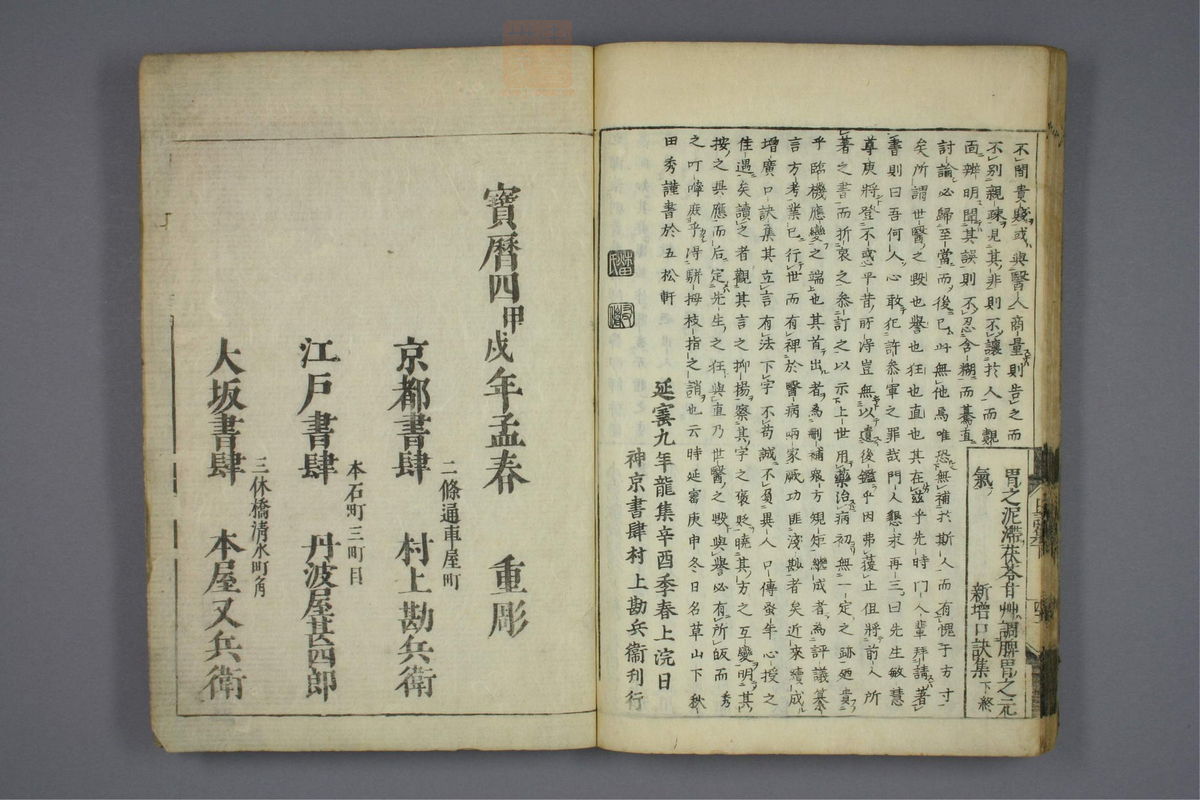 胃之泥滯茯苓甘艸調脾胃之元
氣
新增口訣集下終
不間貴賤或與醫人商量則告之而
不別親疎見其非則不讓於人而覿
面辨明聞其誤則不忍含糊而驀直
討論必歸至當而後已此無他焉唯恐無補於斯人而有愧于方寸
矣所謂世醫之毀也譽也狂也直也其在玆乎先時門人輩拜請著
書則曰吾何人心敢犯許叅軍之罪哉門人懇求再三曰先生敏慧
尊庚將登不惑平昔所得豈無以遺後鑑乎因弗獲止但將前人所
著之書而折衷之叅訂之以示上世用藥治病初無一定之跡廼貴
乎臨機應變之端也其首出者為刪補衆方規矩繼成者為評議纂
言方考業已行世而有裨於醫病兩家厥功匪淺尠者矣近來續成
增廣口訣集其立言有法下字不苟誠不負異人口傳發年心授之
佳遇矣讀之者觀其言之抑揚察其字之褒貶曉其方之互變明其
按之與應而后定先生之狂與直乃世之毀與譽必有所皈而秀
之叮嚀庶乎得駢拇枝指之誚也云時延寶庚申冬日名草山下秋
田秀謹書於五松軒
延寶九年龍集辛酉季春上浣日
神京書肆村上勘兵衞刊行
寶曆四甲戌年孟春 重彫
二條通車屋町
京都書肆 村上勘兵衞
本石町三町目
江戸書肆 丹波屋甚四郎
三休橋清水町角
大坂書肆 本屋又兵衞